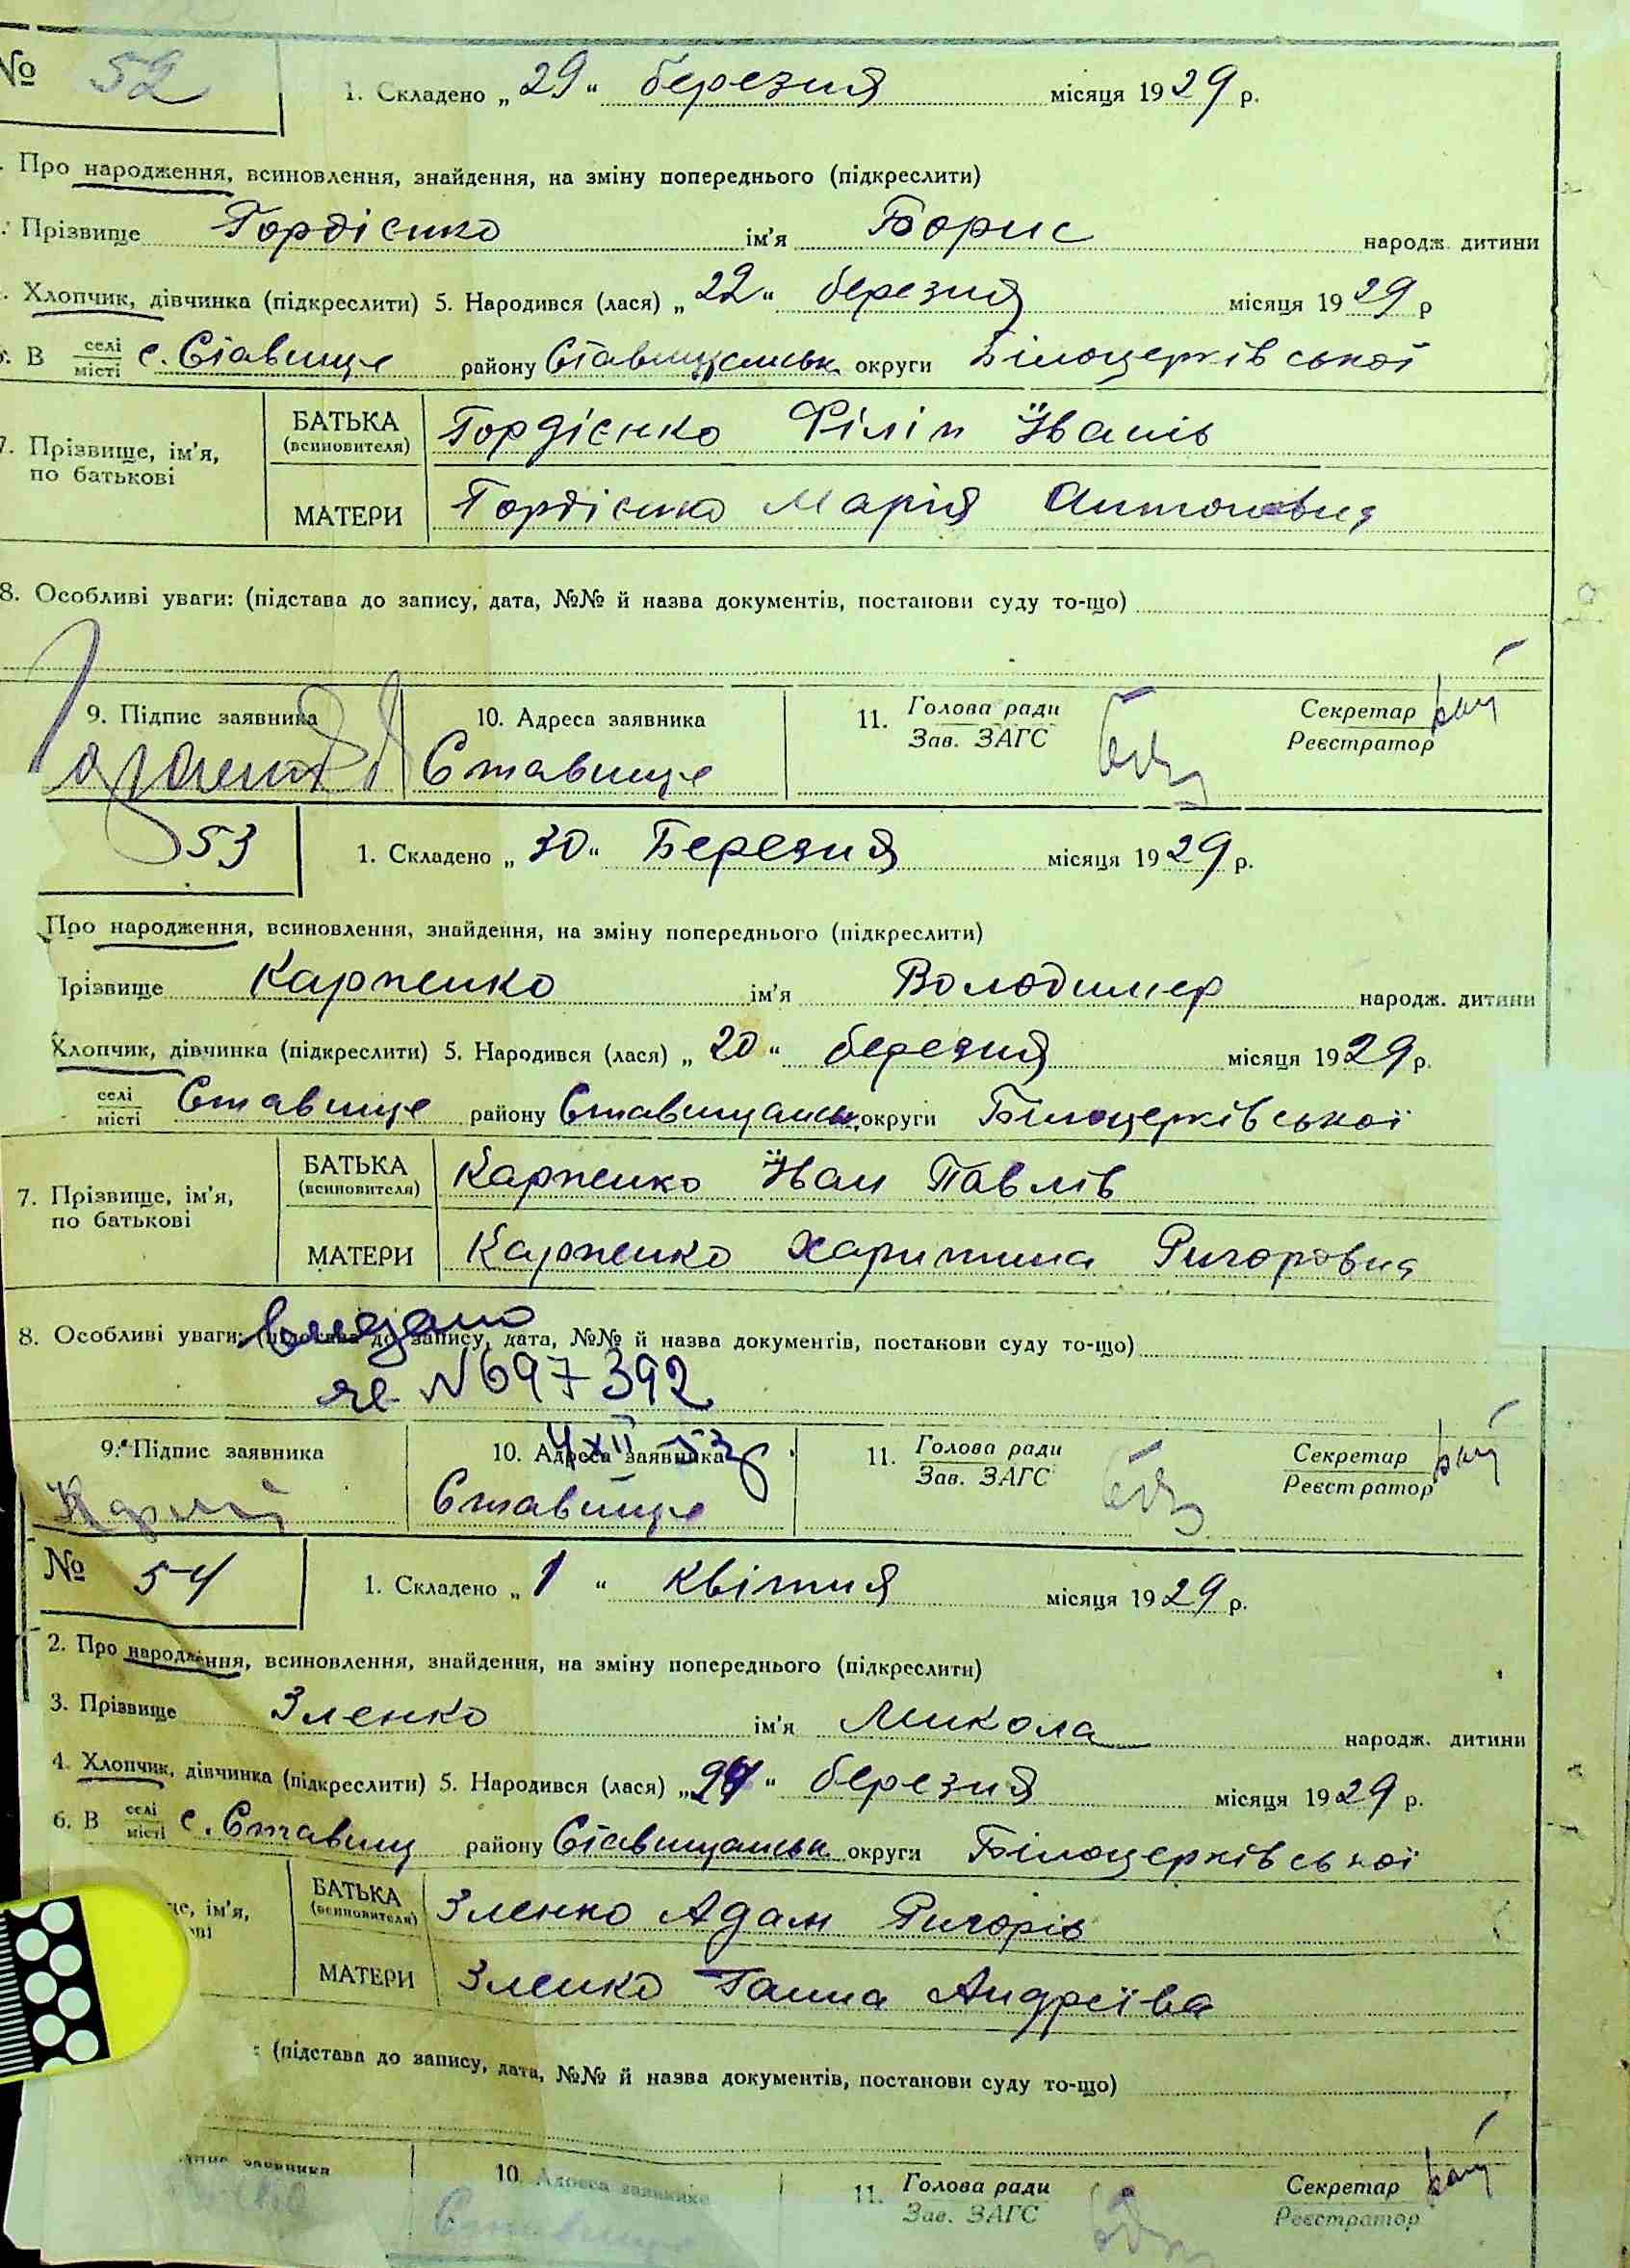 № 52
1. Складено „ 29 “ березня місяця 1929 р.
Про народження, всиновлення, знайдення, на зміну попереднього (підкреслити)
Прізвище Гордієнко ім’я Борис народж. дитини
Хлопчик, дівчинка (підкреслити) 5. Народився (лася) „ 22 “ березня місяця 1929 р
В селі місті с. Ставище району Ставищанськ. округи Білоцерківської
7. Прізвище, ім’я, по батькові
БАТЬКА (всиновителя) Гордієнко Філіп Іванів
МАТЕРИ Гордієнко Марія Антоновна
8. Особливі уваги: (підстава до запису, дата, №№ й назва документів, постанови суду то-що)
9. Підпис заявника 10. Адреса заявника 11. Голова ради Зав. ЗАГС Секретар Реєстратор
Ставище
53
1. Складено „ 30 “ Березня місяця 1929 р.
Про народження, всиновлення, знайдення, на зміну попереднього (підкреслити)
Прізвище Карпенко ім’я Володимер народж. дитини
Хлопчик, дівчинка (підкреслити) 5. Народився (лася) „ 20 “ березня місяця 1929 р.
селі місті Ставище району Ставищанськ. округи Білоцерківської
7. Прізвище, ім’я, по батькові
БАТЬКА (всиновителя) Карпенко Іван Павлів
МАТЕРИ Карпенко Харитина Ригоровна
8. Особливі уваги: (підстава до запису, дата, №№ й назва документів, постанови суду то-що)
№ 697392
9. Підпис заявника 10. Адреса заявника 11. Голова ради Зав. ЗАГС Секретар Реєстратор
4 XII 53
Ставище
№ 54
1. Складено „ 1 “ квітня місяця 1929 р.
2. Про народження, всиновлення, знайдення, на зміну попереднього (підкреслити)
3. Прізвище Зленко ім’я Микола народж. дитини
4. Хлопчик, дівчинка (підкреслити) 5. Народився (лася) „ “ березня місяця 1929 р.
6. В селі місті с. Ставищ району Ставищанськ. округи Білоцерківської
ім’я,
БАТЬКА (всиновителя) Зленко Адам Ригорів
МАТЕРИ Зленко Ганна Андріїва
: (підстава до запису, дата, №№ й назва документів, постанови суду то-що)
заявника 10. Адреса заявника 11. Голова ради Зав. ЗАГС Секретар Реєстратор
Ставище